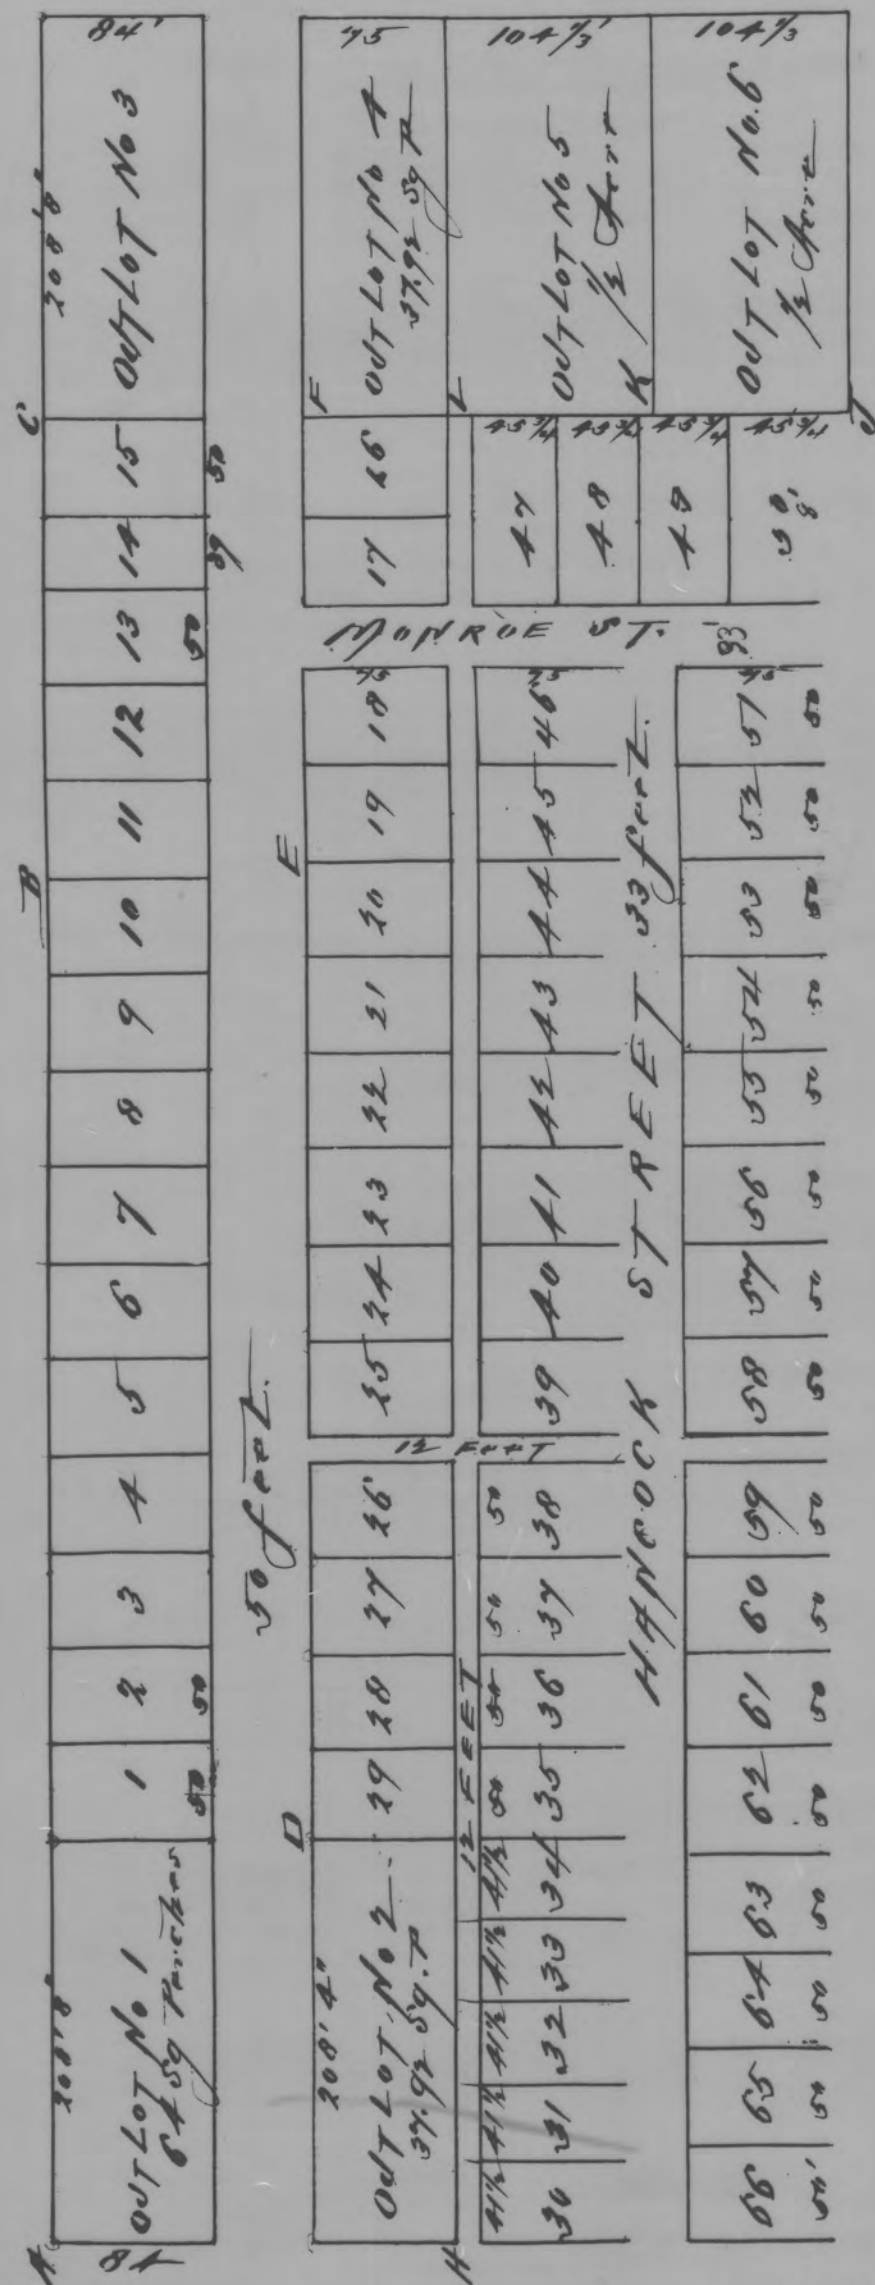 84'
208'8"
OUTLOT No 3
C
15
50
14
39
13
50
12
11
B
10
9
8
7
6
5
4
3
2
50
1
50
208'8
OUTLOT No 1
64 Sq Perches
84
A
50 feet.
75
OUTLOT No 4
37.92 Sq P
F
16
17
MONROE ST.
33'
75
18
19
E
20
21
22
23
24
25
12 FEET
26
27
28
29
D
208'4"
OUTLOT No 2
37.92 Sq. P
H
12 FEET
104 1/3'
OUTLOT No 5
1/2 Acre
L
K
45 3/4
47
45 3/4
48
45 3/4
49
45 3/4
50
8'
75
46
45
44
43
42
41
40
39
50
38
50
37
50
36
50
35
41 1/2
34
41 1/2
33
41 1/2
32
41 1/2
31
41 1/2
30
HANCOCK STREET 33 feet.
104 1/3
OUTLOT No. 6
1/2 Acre
J
75
51
50
52
50
53
50
54
50
55
50
56
50
57
50
58
50
59
50
60
50
61
50
62
50
63
50
64
50
65
50
66
50'